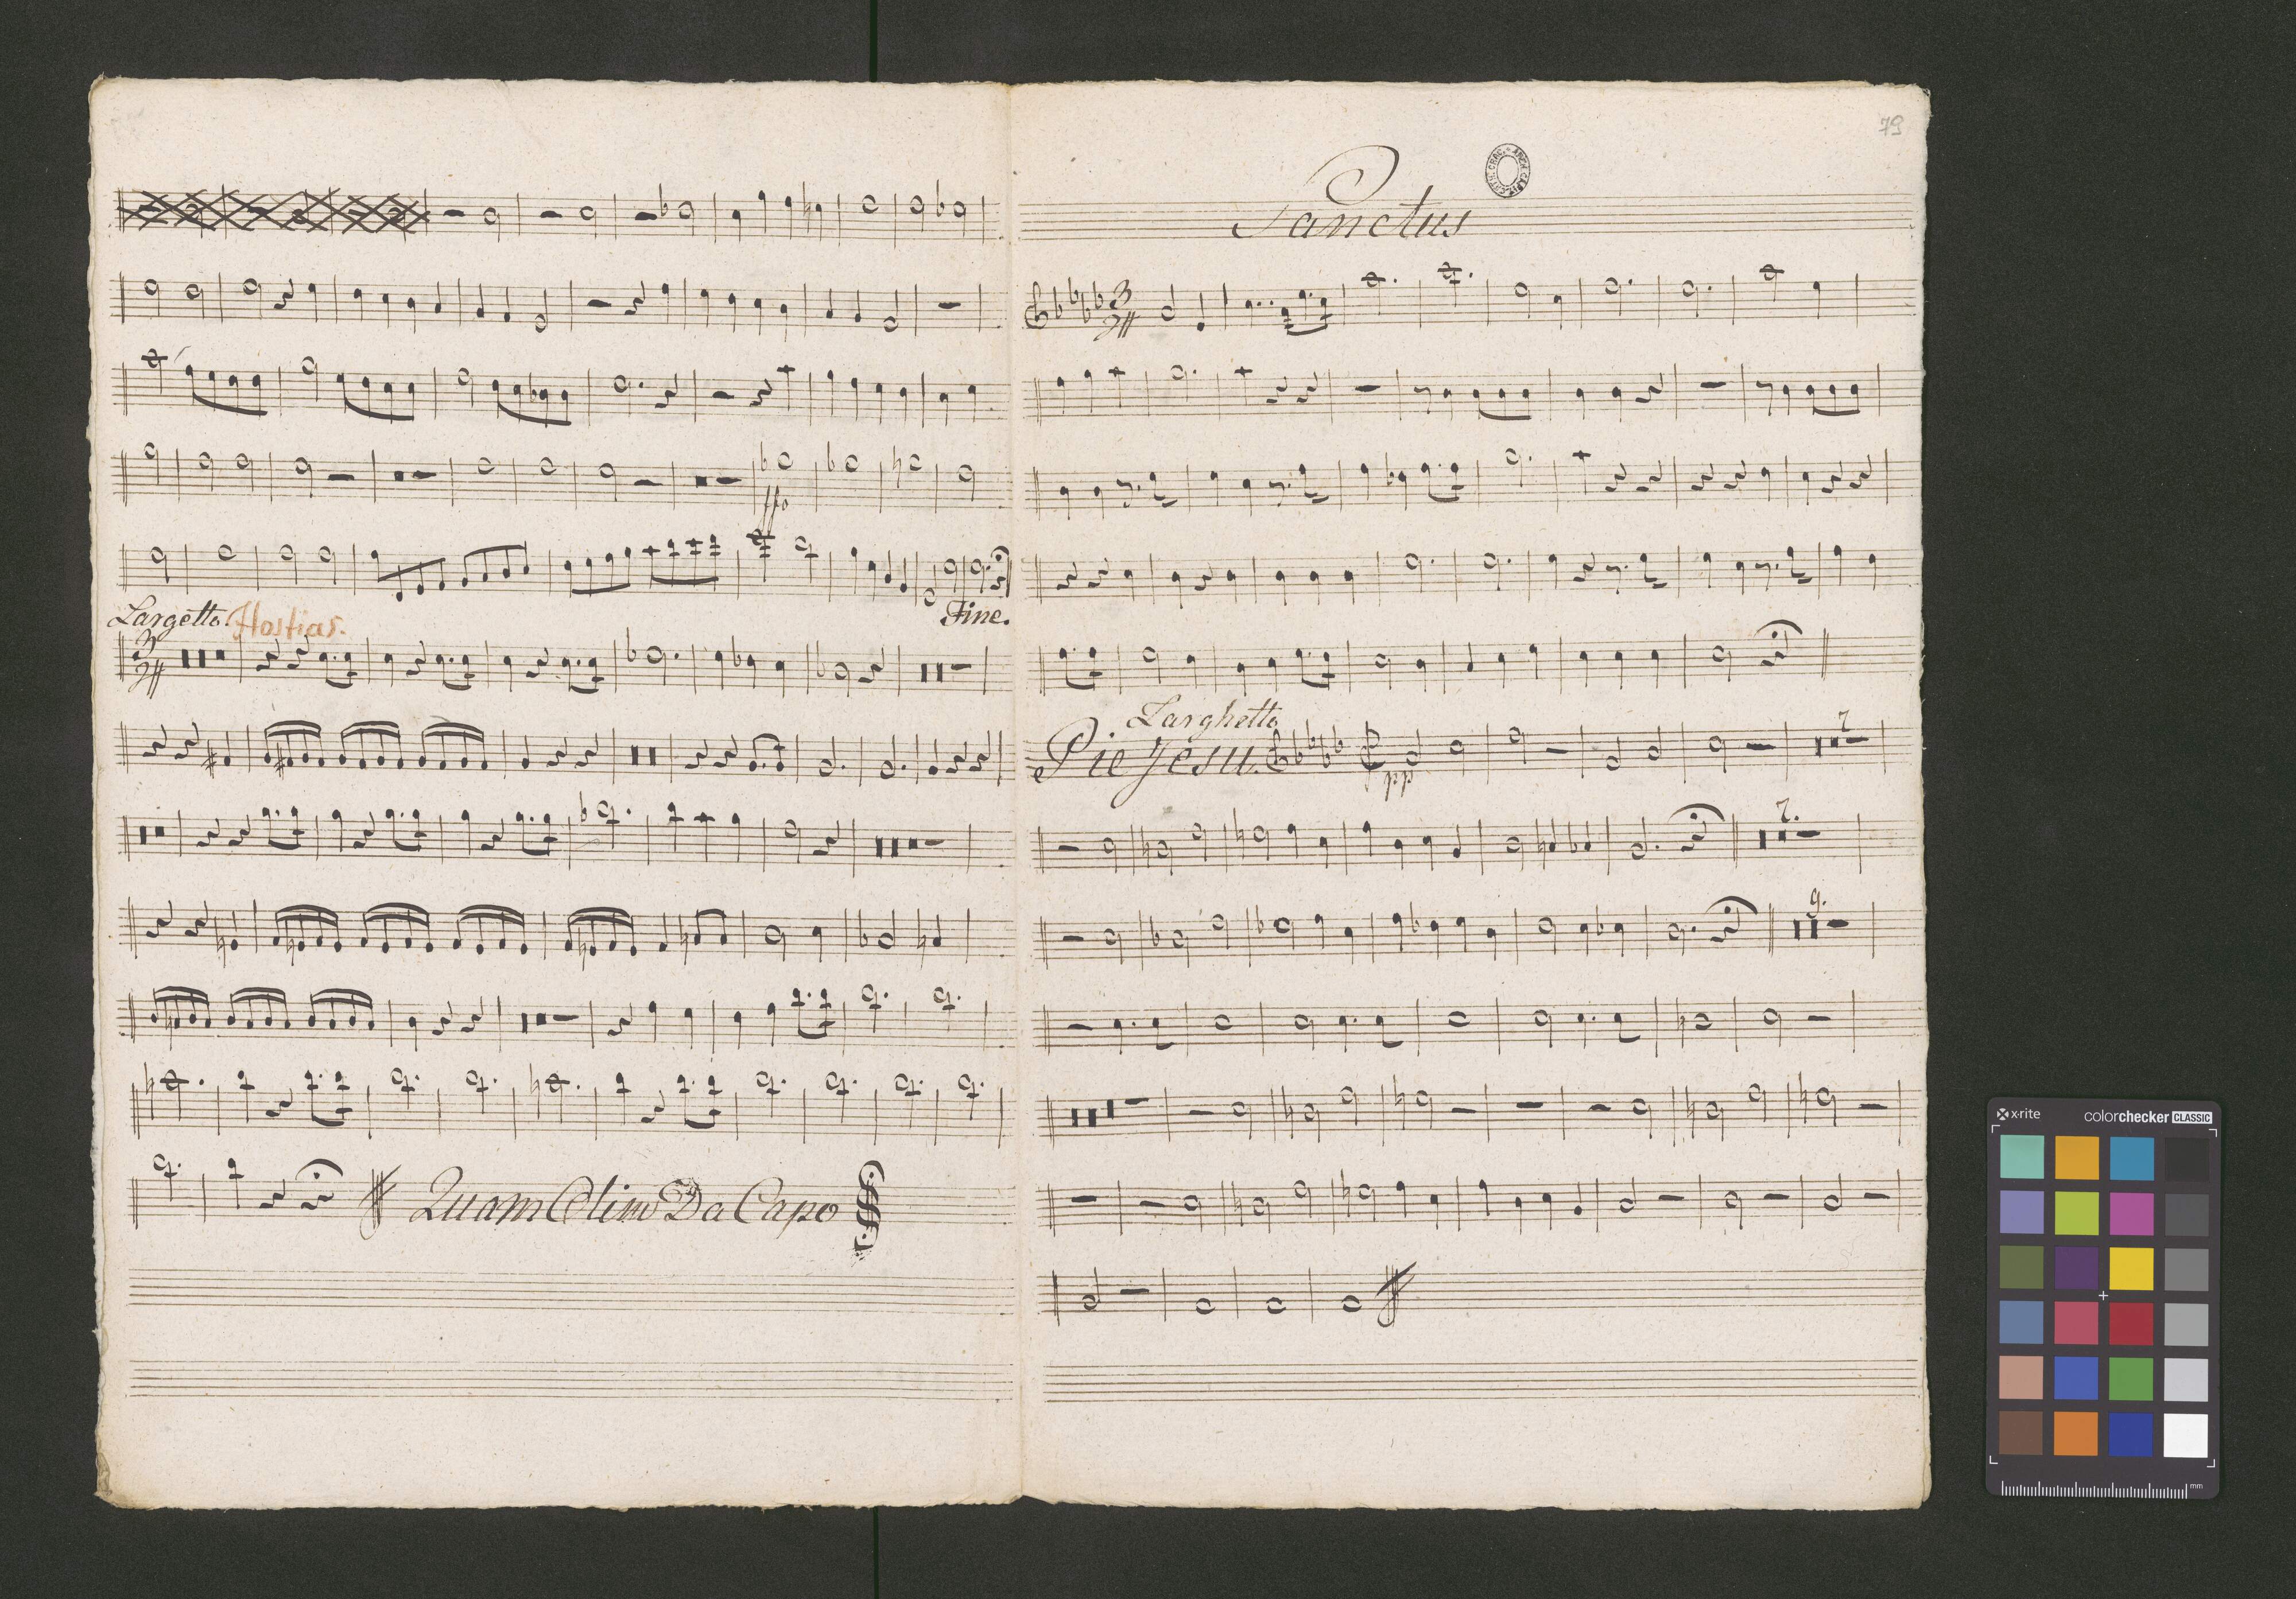 ffo
Largetto. Hostias.
Fine.
3
Quam Olim Da Capo
79
Sanctus
3
Larghetto
Pie Jesu.
pp
7
7.
9.
x-rite colorchecker CLASSIC
mm